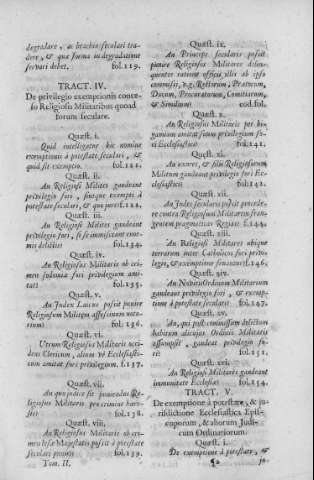 degradare, ac brachio seculari tradere,
& quæ forma in degradatione
servari debet. fol.119.
TRACT. IV.
De privilegio exemptionis concesso
Religiosis Militaribus quoad
forum seculare.
Quæst. i.
Quid intelligatur hic nomine
exemptionis à potestate seculari, &
quid sit exemptio. fol.122.
Quæst. ii.
An Religiosi Milites gaudeant
privilegio fori, sintque exempti à
potestate seculari, & quo jure? f.122.
Quæst. iii.
An Religiosi Milites gaudeant
privilegio fori, si se immisceant
delictis fol.134.
Quæst. iv.
An Religiosus Militaris ob crimen
sodomiæ fori privilegium amittat?
fol.135.
Quæst. v.
An Judex Laicus possit punire
Religiosum Militem assassinum notorium.
fol.136.
Quæst. vi.
Utrum Religiosus Militaris occidens
Clericum, alium vè Ecclesiasticum
amittat fori privilegium. f.137.
Quæst. vii.
An possit judice sæculari
Religiosus Militaris pro crimine hæresis?
fol.138.
Quæst. viii.
An Religiosus Militaris ob crimen
læsæ Majestatis possit à potestate
seculari puniri fol.139.
Tom. II.
Quæst. ix.
An Princeps secularis possit
punire Religiosos Militares delinquentes
ratione officii, illis ab ipso
commissi, v.g. Rectorum, Prætorum,
Ducum, Procuratorum, Comitatum,
& Similium? eod. fol.
Quæst. x.
An Religiosus Militaris per bigamiam
amittat suum privilegium fori
Ecclesiastici? fol.141.
Quæst. xi.
An uxores, & filii Religiosorum
Militum gaudeant privilegio fori Ecclesiastici?
fol.142.
Quæst. xii.
An Judex secularis possit procedere
contra Religiosum Militarem frangentem
pragmaticas Regias? f.144.
Quæst. xiii.
An Religiosi Militares ubique
terrarum inter Catholicos fori privilegio,
& exemptione f.146.
Quæst. xiv.
An Novitii Ordinum Militarium
gaudeant privilegio fori, & exemptione
à potestate seculari? fol.147.
Quæst. xv.
An, qui post commissum delictum
habitum alicujus Ordinis Militaris
assumpsit, gaudeat privilegio fori?
fol.151.
Quæst. xvi.
An Religiosi Militares gaudeant
immunitate Ecclesiæ? fol.154.
TRACT. V.
De exemptione à potestate, & jurisdictione
Ecclesiastica Episcoporum,
& aliorum Judicum
Ordinariorum.
Quæst. i.
De exemptione à potestate, &